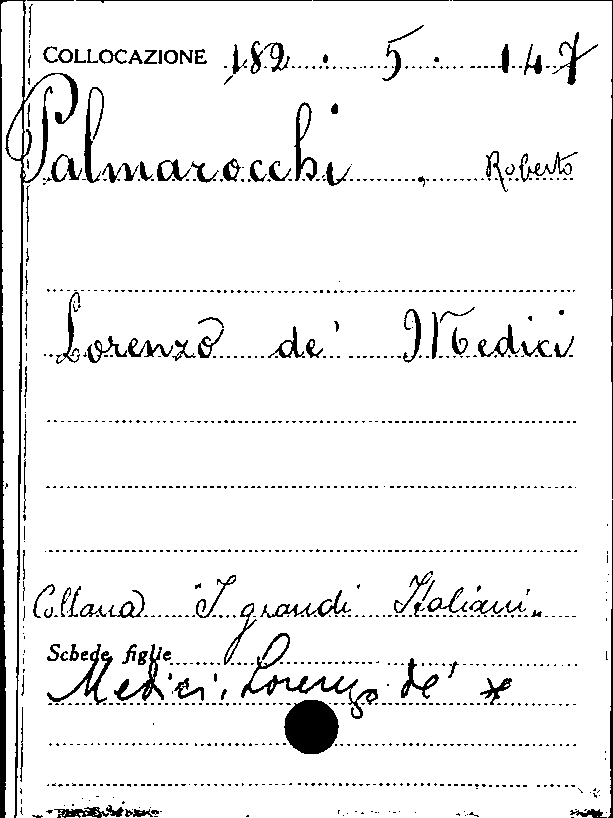 COLLOCAZIONE 182 . 5 . 147
Palmarocchi , Roberto
Lorenzo de' Medici
Collana "I grandi Italiani"
Schede figlie
Medici, Lorenzo de' *